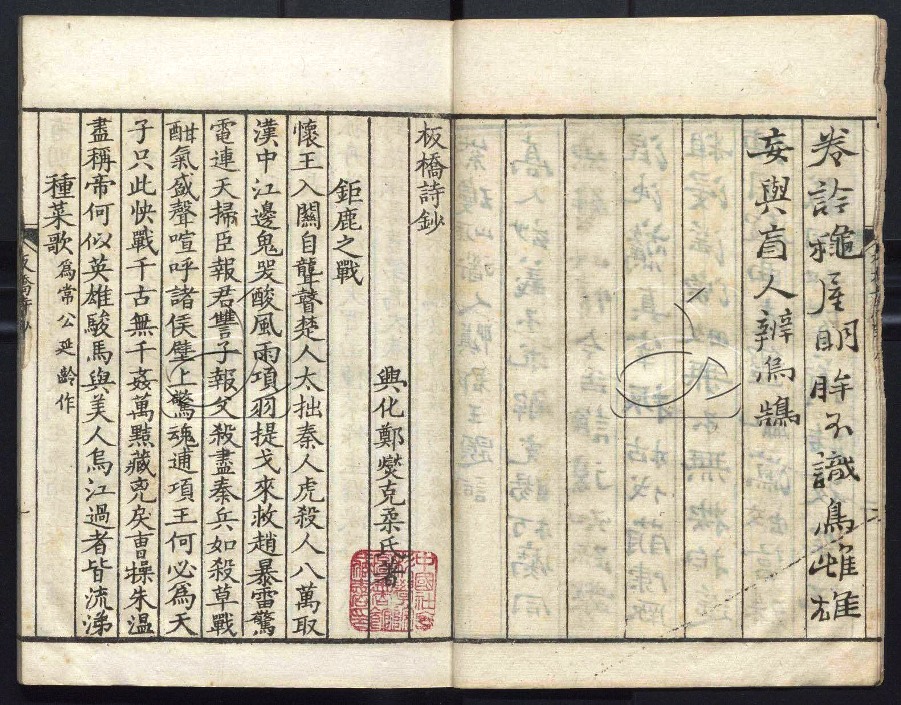 卷訡龝屋朙眸不識鳥雌雄
妄與盲人辨烏鵲
板橋詩鈔
興化鄭燮克柔氏著
鉅鹿之戰
懷王入關自聾瞽楚人太拙秦人虎殺人八萬取
漢中江邊鬼哭酸風雨項羽提戈來救趙暴雷驚
電連天掃臣報君讐子報父殺盡秦兵如殺草戰
酣氣盛聲喧呼諸侯壁上驚魂逋項王何必為天
子只此快戰千古無千姦萬黠藏兇戾曹操朱温
盡稱帝何似英雄駿馬與美人烏江過者皆流涕
種菜歌為常公延齡作
板橋詩鈔